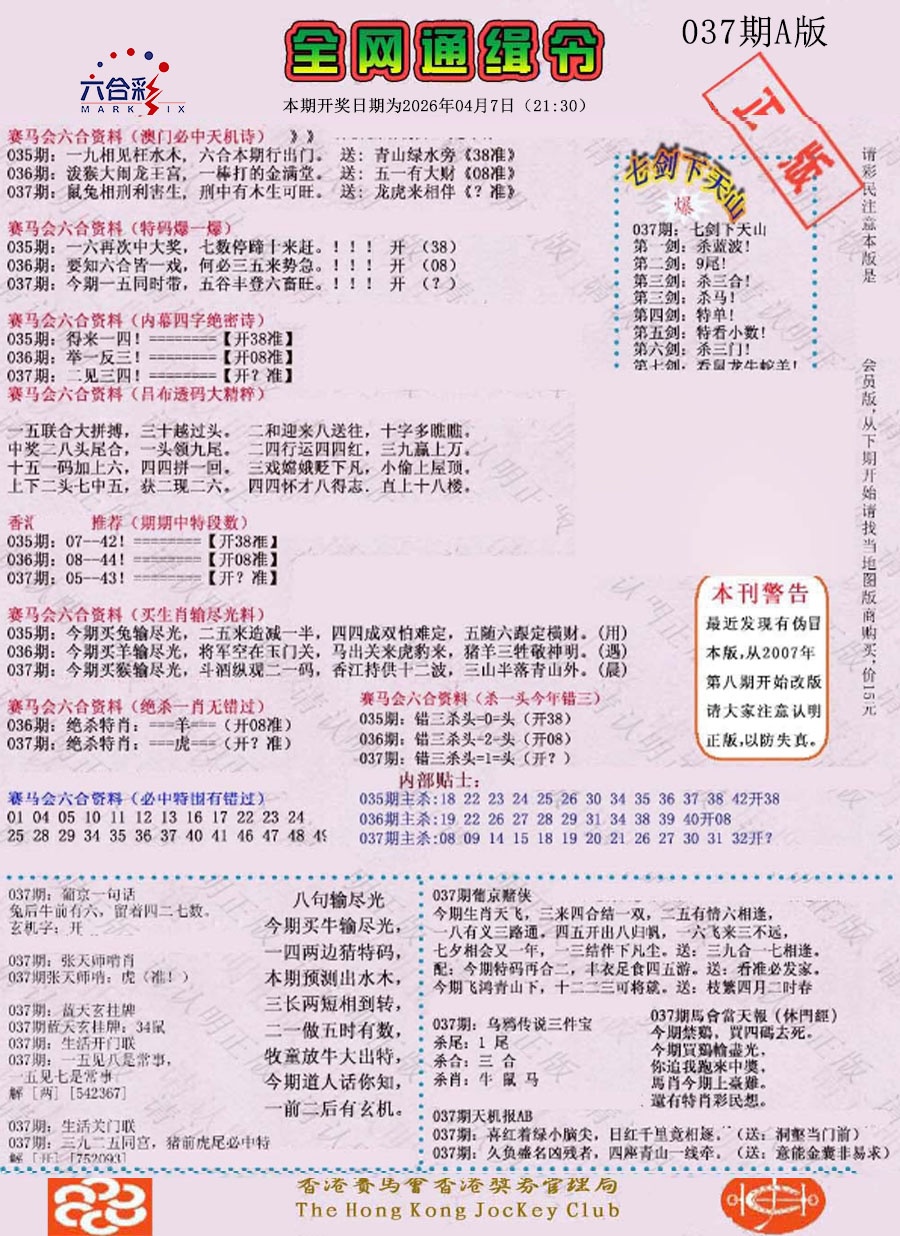 全网通缉令
037期A版
六合彩
MARK SIX
本期开奖日期为2026年04月7日（21:30）
正版
赛马会六合资料（澳门必中天机诗） 》》
035期：一九相见枉水木，六合本期行出门。 送：青山绿水旁《38准》
036期：泼猴大闹龙王宫，一棒打的金满堂。 送：五一有大财《08准》
037期：鼠兔相刑利害生，刑中有木生可旺。 送：龙虎来相伴《？准》
赛马会六合资料（特码爆一爆）
035期：一六再次中大奖，七数停蹄十来赶。！！！ 开 （38）
036期：要知六合皆一戏，何必三五来势急。！！！ 开 （08）
037期：今期一五同时带，五谷丰登六畜旺。！！！ 开 （？）
赛马会六合资料（内幕四字绝密诗）
035期：得来一四！========【开38准】
036期：举一反三！========【开08准】
037期：二见三四！========【开？准】
赛马会六合资料（吕布透码大精粹）
一五联合大拼搏，三十越过头。 二和迎来八送往，十字多瞧瞧。
中奖二八头尾合，一头领九尾。 二四行运四四红，三九赢上万。
十五一码加上六，四四拼一回。 三戏嫦娥贬下凡，小偷上屋顶。
上下二头七中五，获二现二六。 四四怀才八得志．直上十八楼。
七剑下天山
爆
037期：七剑下天山
第一剑：杀蓝波！
第二剑：9尾！
第三剑：杀三合！
第三剑：杀马！
第四剑：特单！
第五剑：特看小数！
第六剑：杀三门！
第七剑：看鼠龙牛蛇羊！
请彩民注意本版是
会员版，从下期开始请找当地图版商购买，价15元
推荐（期期中特段数）
035期：07--42！========【开38准】
036期：08--44！========【开08准】
037期：05--43！========【开？准】
赛马会六合资料（买生肖输尽光料）
035期：今期买兔输尽光，二五来造减一半，四四成双怕难定，五随六跟定横财。(用)
036期：今期买羊输尽光，将军空在玉门关，马出关来虎豹来，猪羊三牲敬神明。(遇)
037期：今期买猴输尽光，斗酒纵观二一码，香江持供十二波，三山半落青山外。(晨)
本刊警告
最近发现有伪冒
本版，从2007年
第八期开始改版
请大家注意认明
正版，以防失真。
赛马会六合资料（绝杀一肖无错过）
036期：绝杀特肖：===羊===（开08准）
037期：绝杀特肖：===虎===（开？准）
赛马会六合资料（杀一头今年错三）
035期：错三杀头=0=头（开38）
036期：错三杀头=2=头（开08）
037期：错三杀头=1=头（开？）
内部贴士：
035期主杀:18 22 23 24 25 26 30 34 35 36 37 38 42开38
036期主杀:19 22 26 27 28 29 31 34 38 39 40开08
037期主杀:08 09 14 15 18 19 20 21 26 27 30 31 32开？
赛马会六合资料（必中特围有错过）
01 04 05 10 11 12 13 16 17 22 23 24
25 28 29 34 35 36 37 40 41 46 47 48 49
037期：葡京一句话
兔后牛前有六，留着四二七数。
玄机字：开
037期：张天师哨肖
037期张天师哨：虎（准！）
037期：蓝天玄挂牌
037期蓝天玄挂牌：34鼠
037期：生活开门联
037期：一五见八是常事，
一五见七是常事
解 [两] [542367]
037期：生活关门联
037期：三九二五同宫，猪前虎尾必中特
解 [开] [752093]
八句输尽光
今期买牛输尽光，
一四两边猜特码，
本期预测出水木，
三长两短相到转，
二一做五时有数，
牧童放牛大出特，
今期道人话你知，
一前二后有玄机。
037期葡京赌侠
今期生肖天飞，三来四合结一双，二五有情六相逢，
一八有义三路通。四五开出八归帆，一六飞来三不远，
七夕相会又一年，一三结伴下凡尘。送：三九合一七相逢。
配：今期特码再合二，丰衣足食四五游。送：看准必发家。
今期飞鸿青山下，十二二三可将蔵。送：枝繁四月二时春
037期：乌鸦传说三件宝
杀尾：1 尾
杀合：三 合
杀肖：牛 鼠 马
037期馬會當天報（休門經）
今期禁鷄，買四碼去死。
今期買鷄輸盡光，
你追我跑來中獎，
馬肖今期上臺難。
還有特肖彩民想。
037期天机报AB
037期：喜红着绿小脑尖，日红千里竟相逐。（送：洞壑当门前）
037期：久负盛名凶残者，四座青山一线牵。（送：意能金囊非易求）
香港賽馬會香港獎券管理局
The Hong Kong JocKey Club